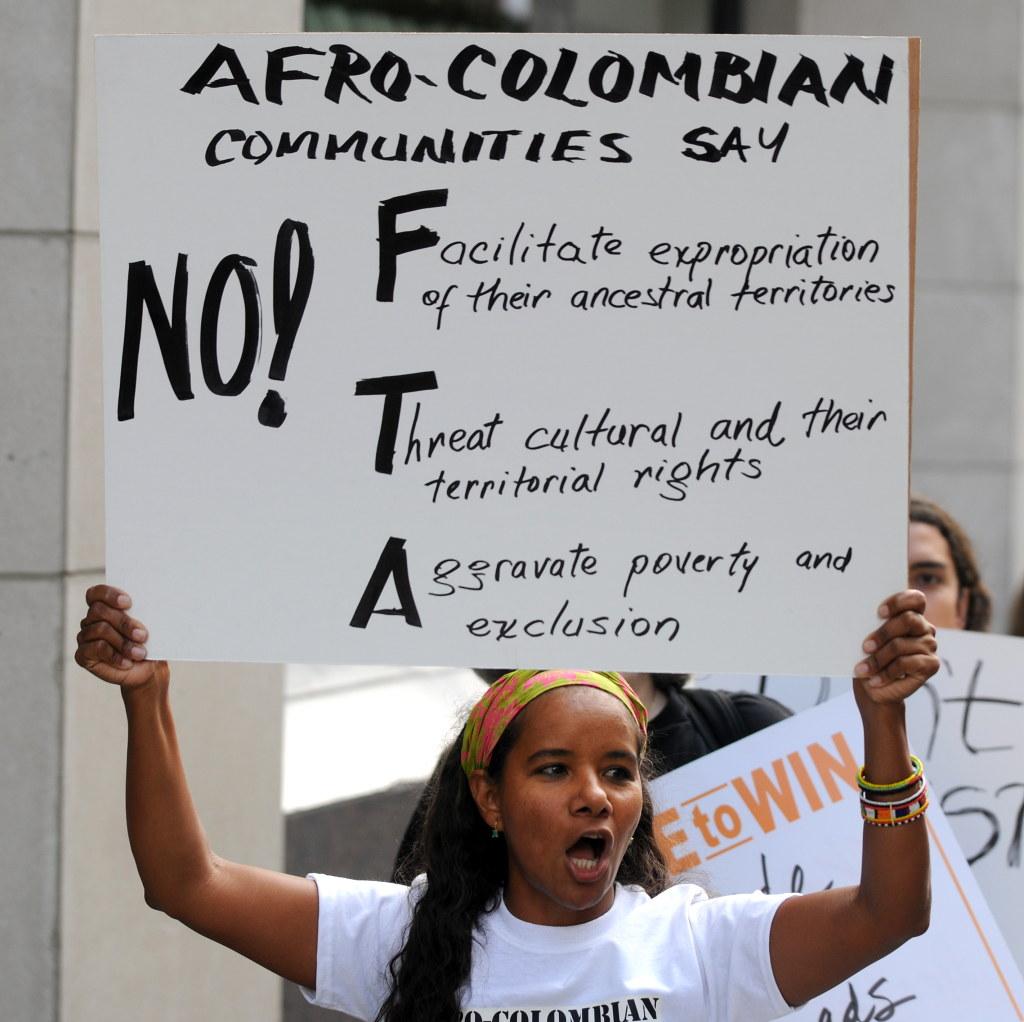 AFRO-COLOMBIAN
COMMUNITIES SAY
NO!
Facilitate expropriation
of their ancestral territories
Threat cultural and their
territorial rights
Aggravate poverty and
exclusion
to WIN
O-COLOMBIAN